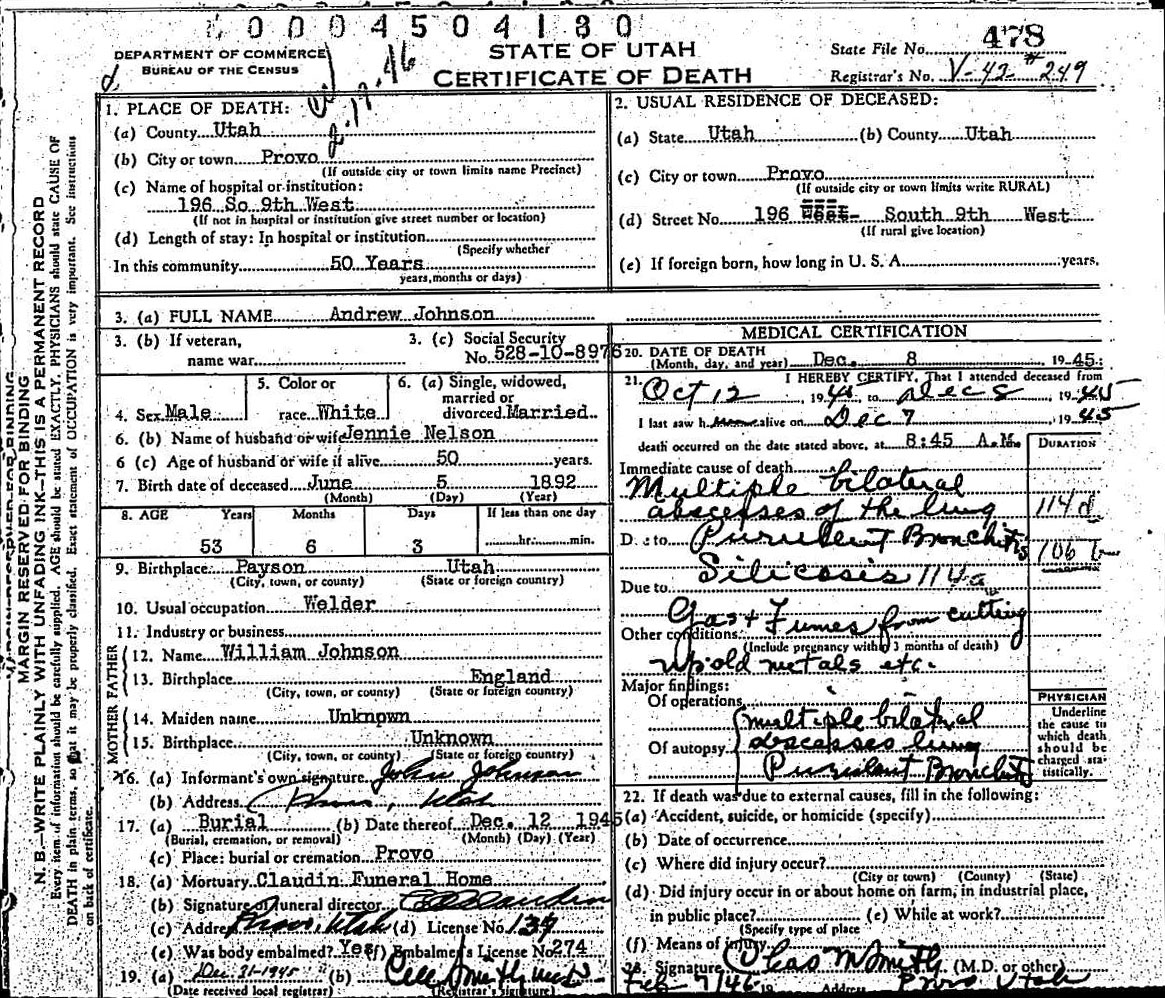 0004504180
DEPARTMENT OF COMMERCE
BUREAU OF THE CENSUS
2-19-46
STATE OF UTAH
CERTIFICATE OF DEATH
State File No. 478
Registrar's No. V-42-#249
MARGIN RESERVED FOR BINDING
N. B.—WRITE PLAINLY WITH UNFADING INK—THIS IS A PERMANENT RECORD
Every item of information should be carefully supplied. AGE should be stated EXACTLY. PHYSICIANS should state CAUSE OF
DEATH in plain terms, so that it may be properly classified. Exact statement of OCCUPATION is very important. See instructions
on back of certificate.
1. PLACE OF DEATH:
(a) County Utah
(b) City or town Provo
(If outside city or town limits name Precinct)
(c) Name of hospital or institution:
196 So 9th West
(If not in hospital or institution give street number or location)
(d) Length of stay: In hospital or institution
(Specify whether
In this community 50 Years
years, months or days)
2. USUAL RESIDENCE OF DECEASED:
(a) State Utah (b) County Utah
(c) City or town Provo
(If outside city or town limits write RURAL)
(d) Street No. 196 West South 9th West
(If rural give location)
(e) If foreign born, how long in U. S. A. years.
3. (a) FULL NAME Andrew Johnson
3. (b) If veteran,
name war
3. (c) Social Security
No. 528-10-8976
4. Sex Male
5. Color or
race White
6. (a) Single, widowed,
married or
divorced Married
6. (b) Name of husband or wife Jennie Nelson
6 (c) Age of husband or wife if alive 50 years.
7. Birth date of deceased June 5 1892
(Month) (Day) (Year)
8. AGE Years Months Days If less than one day
53 6 3 hr. min.
9. Birthplace Payson Utah
(City, town, or county) (State or foreign country)
10. Usual occupation Welder
11. Industry or business
FATHER
12. Name William Johnson
13. Birthplace England
(City, town, or county) (State or foreign country)
MOTHER
14. Maiden name Unknown
15. Birthplace Unknown
(City, town, or county) (State or foreign country)
16. (a) Informant's own signature John Johnson
(b) Address Provo, Utah
17. (a) Burial (b) Date thereof Dec. 12 1945
(Burial, cremation, or removal) (Month) (Day) (Year)
(c) Place: burial or cremation Provo
18. (a) Mortuary Claudin Funeral Home
(b) Signature of funeral director Claudin
(c) Address Provo, Utah (d) License No. 139
(e) Was body embalmed? Yes (f) Embalmer's License No. 274
19. (a) Dec 31-1945 (b)
(Date received local registrar) (Registrar's signature)
MEDICAL CERTIFICATION
20. DATE OF DEATH
(Month, day, and year) Dec. 8 1945
21. I HEREBY CERTIFY, That I attended deceased from
Oct 12, 1945 to Dec 8 1945
I last saw h alive on Dec 7 1945
death occurred on the date stated above, at 8:45 A.M.
DURATION
Immediate cause of death
Multiple bilateral
abscesses of the lung 114d
Due to Purulent Bronchitis 106
Due to Silicosis 114a
Gas & Fumes from cutting
Other conditions
(Include pregnancy within 3 months of death)
up old metals etc.
Major findings:
Of operations
Of autopsy multiple bilateral
abscesses lung
Purulent Bronchitis
PHYSICIAN
Underline
the cause to
which death
should be
charged sta-
tistically.
22. If death was due to external causes, fill in the following:
(a) Accident, suicide, or homicide (specify)
(b) Date of occurrence
(c) Where did injury occur?
(City or town) (County) (State)
(d) Did injury occur in or about home on farm, in industrial place,
in public place? (e) While at work?
(Specify type of place
(f) Means of injury
23. Signature Chas M Smith (M.D. or other)
Feb 7/46 19 Address Provo Utah